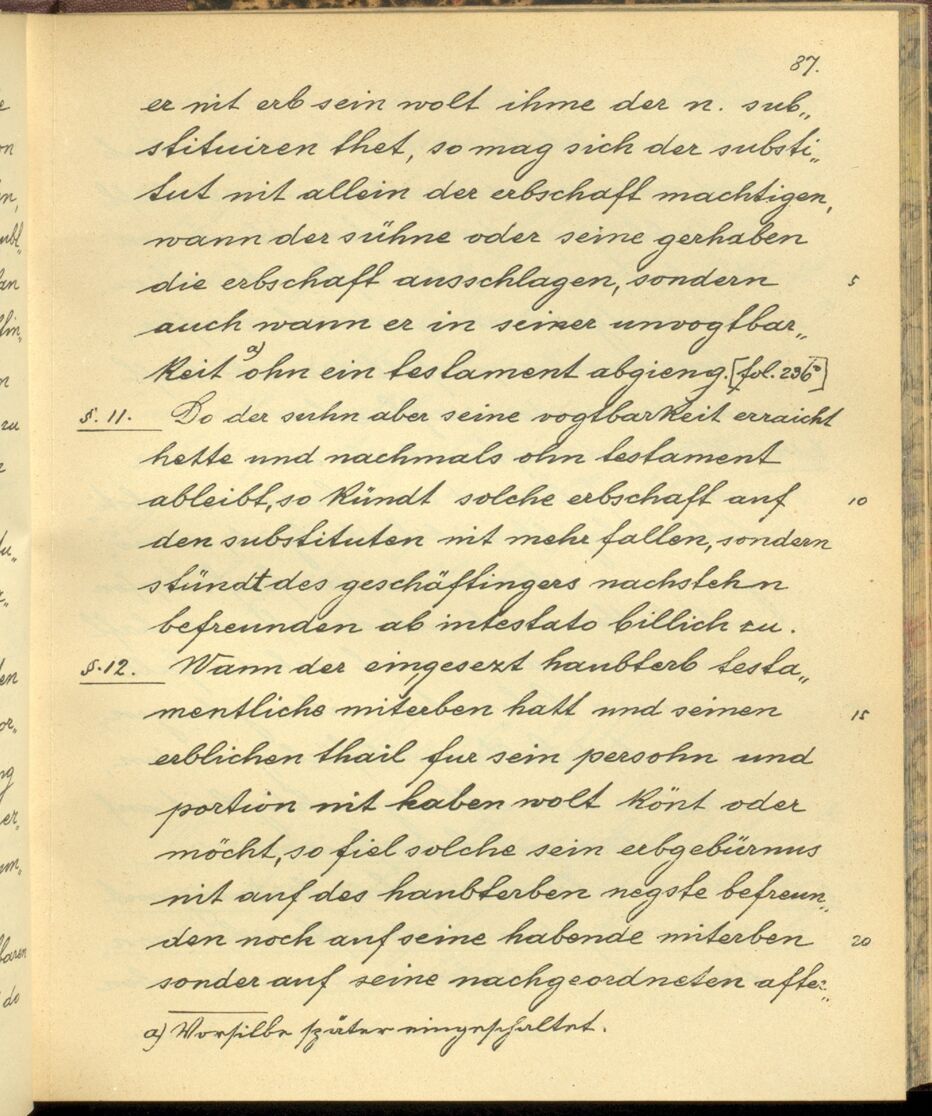 87.
er nit erb sein wolt ihme der n. sub„
stituiren thet, so mag sich der substi„
tut nit allein der erbschaft machtigen,
wann der sühne oder seine gerhaben
die erbschaft ausschlagen, sondern 5
auch wann er in seiner unvogtbar„
keit a) ohn ein testament abgieng. [fol. 236b]
§. 11. Do der suhn aber seine vogtbarkeit erraicht
hette und nachmals ohn testament
ableibt, so kündt solche erbschaft auf 10
den substituten nit mehr fallen, sondern
stündt des geschäftingers nachstehn
befreunden ab intestato billich zu.
§. 12. Wann der eingesezt haubterb testa„
mentliche miterben hatt und seinen 15
erblichen thail fur sein persohn und
portion nit haben wolt könt oder
möcht, so fiel solche sein erbgebürnus
nit auf des haubterben negste befreun„
den noch auf seine habende miterben 20
sonder auf seine nachgeordneten after„
a) Vorsilbe später eingeschaltet.